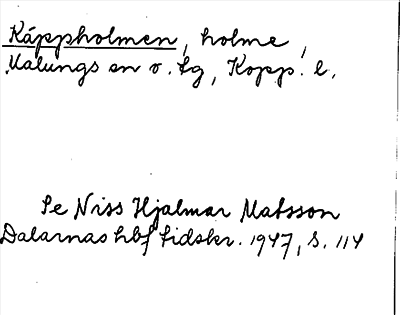 Käppholmen, holme,
Malungs sn o. tg, Kopp. l.
Se Niss Hjalmar Matsson
Dalarnas hbf tidskr. 1947, s. 114